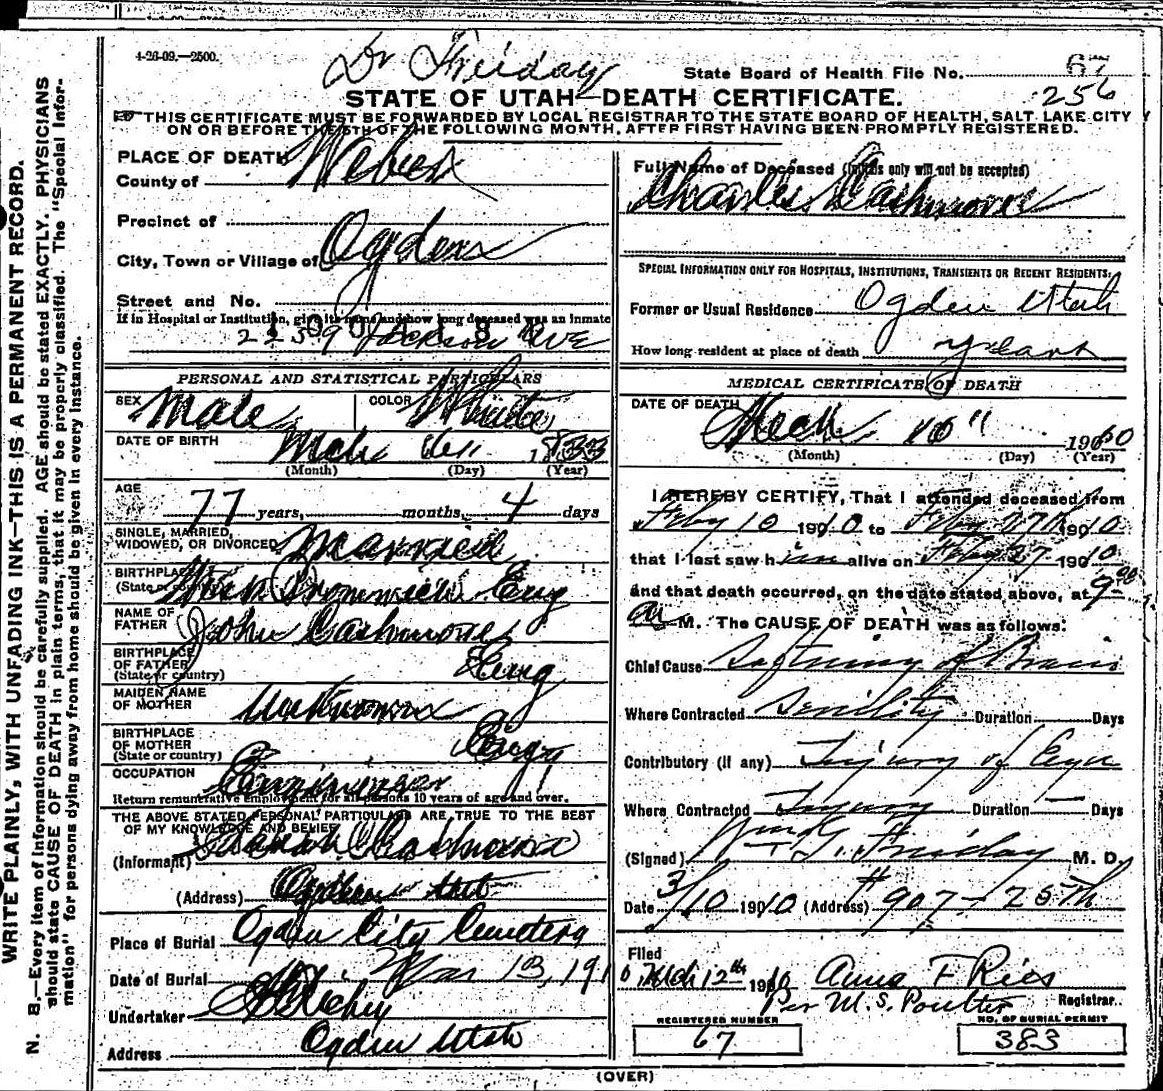 4-26-09.—2500.
Dr Friday
State Board of Health File No. 67
256
STATE OF UTAH—DEATH CERTIFICATE.
THIS CERTIFICATE MUST BE FORWARDED BY LOCAL REGISTRAR TO THE STATE BOARD OF HEALTH, SALT LAKE CITY
ON OR BEFORE THE 5TH OF THE FOLLOWING MONTH, AFTER FIRST HAVING BEEN PROMPTLY REGISTERED.
WRITE PLAINLY, WITH UNFADING INK—THIS IS A PERMANENT RECORD.
N. B.—Every item of information should be carefully supplied. AGE should be stated EXACTLY. PHYSICIANS
should state CAUSE OF DEATH in plain terms, that it may be properly classified. The "Special Infor-
mation" for persons dying away from home should be given in every instance.
PLACE OF DEATH
County of Weber
Precinct of
City, Town or Village of Ogden
Street and No.
If in Hospital or Institution, give its name and show long deceased was an inmate
2259 Jackson Ave
PERSONAL AND STATISTICAL PARTICULARS
SEX Male COLOR White
DATE OF BIRTH Mch 6" 1833
(Month) (Day) (Year)
AGE 77 years, months, 4 days
SINGLE, MARRIED,
WIDOWED, OR DIVORCED Married
BIRTHPLACE
(State or country) Bromwich Eng
NAME OF
FATHER John Cashmore
BIRTHPLACE
OF FATHER
(State or country) Eng
MAIDEN NAME
OF MOTHER Unknown
BIRTHPLACE
OF MOTHER
(State or country) Eng
OCCUPATION Engineer
Return remunerative employment for all persons 10 years of age and over.
THE ABOVE STATED PERSONAL PARTICULARS ARE TRUE TO THE BEST
OF MY KNOWLEDGE AND BELIEF
(Informant) Cashmore
(Address) Ogden Utah
Place of Burial Ogden City Cemetery
Date of Burial Mar 13, 1910
Undertaker
Address Ogden Utah
Full Name of Deceased (Initials only will not be accepted)
Charles Cashmore
SPECIAL INFORMATION ONLY FOR HOSPITALS, INSTITUTIONS, TRANSIENTS OR RECENT RESIDENTS.
Former or Usual Residence Ogden Utah
How long resident at place of death years
MEDICAL CERTIFICATE OF DEATH
DATE OF DEATH Mch 10" 1910
(Month) (Day) (Year)
I HEREBY CERTIFY, That I attended deceased from
Feby 10 1910 to Feby 27th 1910
that I last saw him alive on Feby 27 1910
and that death occurred, on the date stated above, at 9 00
a M. The CAUSE OF DEATH was as follows:
Chief Cause Softning of Brain
Where Contracted Senility Duration Days
Contributory (if any) Injury of Eye
Where Contracted Injury Duration — Days
(Signed) Wm L. Friday M. D.
Date 3/10 1910 (Address) # 907 - 25th
Filed
Mch 12th 1910 Anna F Ries
Per M. S. Poulter Registrar.
REGISTERED NUMBER
67
NO. OF BURIAL PERMIT
383
(OVER)